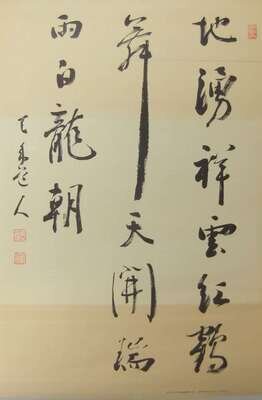 地湧祥雲紅鶴
舞天開瑞
雨白龍朝
道人